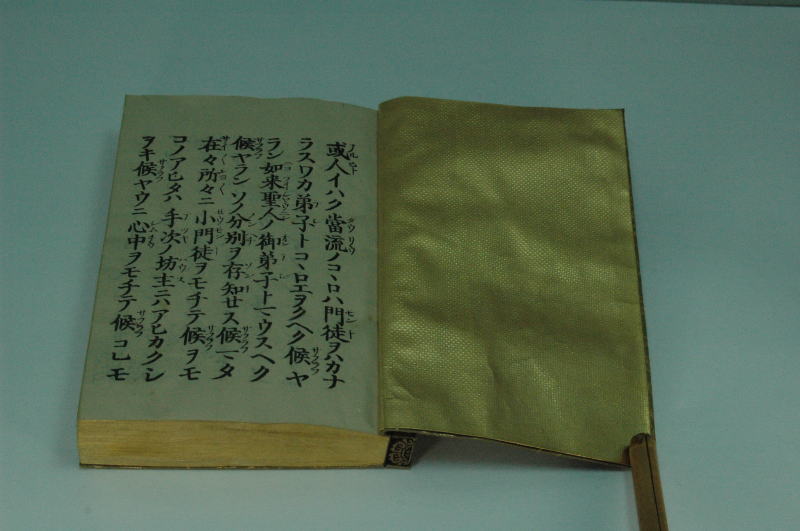 或人イハク當流ノコヽロハ門徒ヲハカナ
ラスワカ弟子トコヽロエヲクヘク候ヤ
ラン如来聖人ノ御弟子トマウスヘク
候ヤランソノ分別ヲ存知セス候マタ
在々所々ニ小門徒ヲモチテ候ヲモ
コノアヒタハ手次ノ坊主ニハアヒカクシ
ヲキ候ヤウニ心中ヲモチテ候コレモ